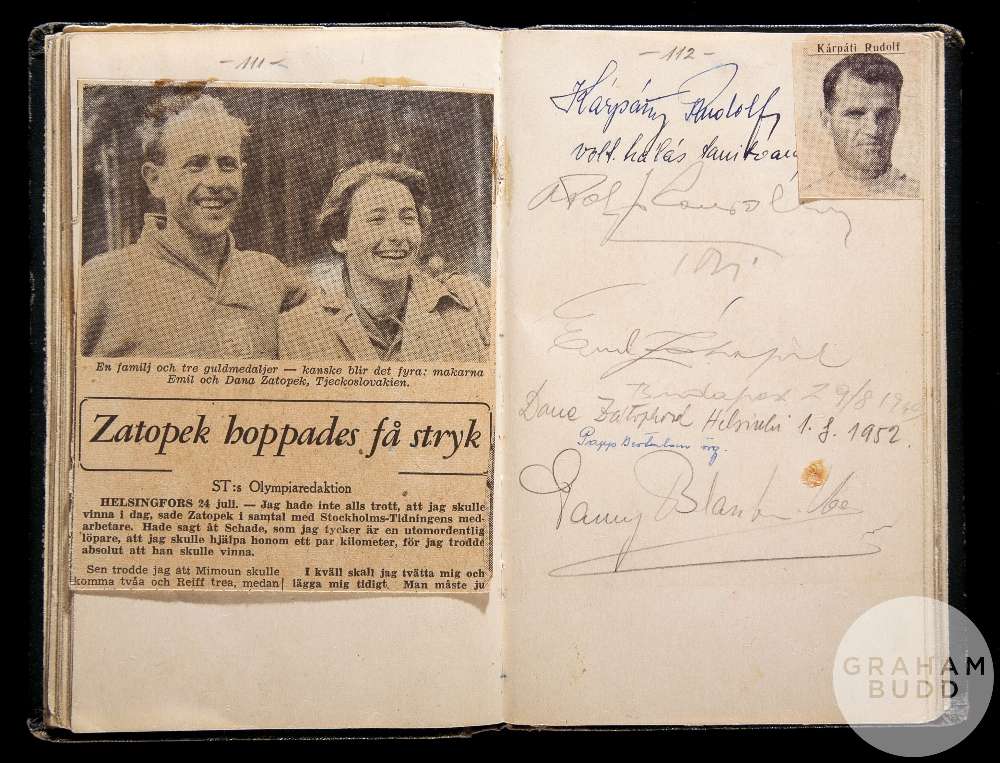 - 111 -
En familj och tre guldmedaljer — kanske blir det fyra: makarna
Emil och Dana Zatopek, Tjeckoslovakien.
Zatopek hoppades få stryk
ST:s Olympiaredaktion
HELSINGFORS 24 juli. — Jag hade inte alls trott, att jag skulle
vinna i dag, sade Zatopek i samtal med Stockholms-Tidningens med-
arbetare. Hade sagt åt Schade, som jag tycker är en utomordentlig
löpare, att jag skulle hjälpa honom ett par kilometer, för jag trodde
absolut att han skulle vinna.
Sen trodde jag att Mimoun skulle
komma tvåa och Reiff trea, medan
I kväll skall jag tvätta mig och
lägga mig tidigt. Man måste ju
- 112 -
Kárpáti Rudolf
Rudolf
volt halás
Emil
Budapest 29/8
Dana Helsinki 1.8.1952.
Papp
Fanny Blankers
GRAHAM
BUDD